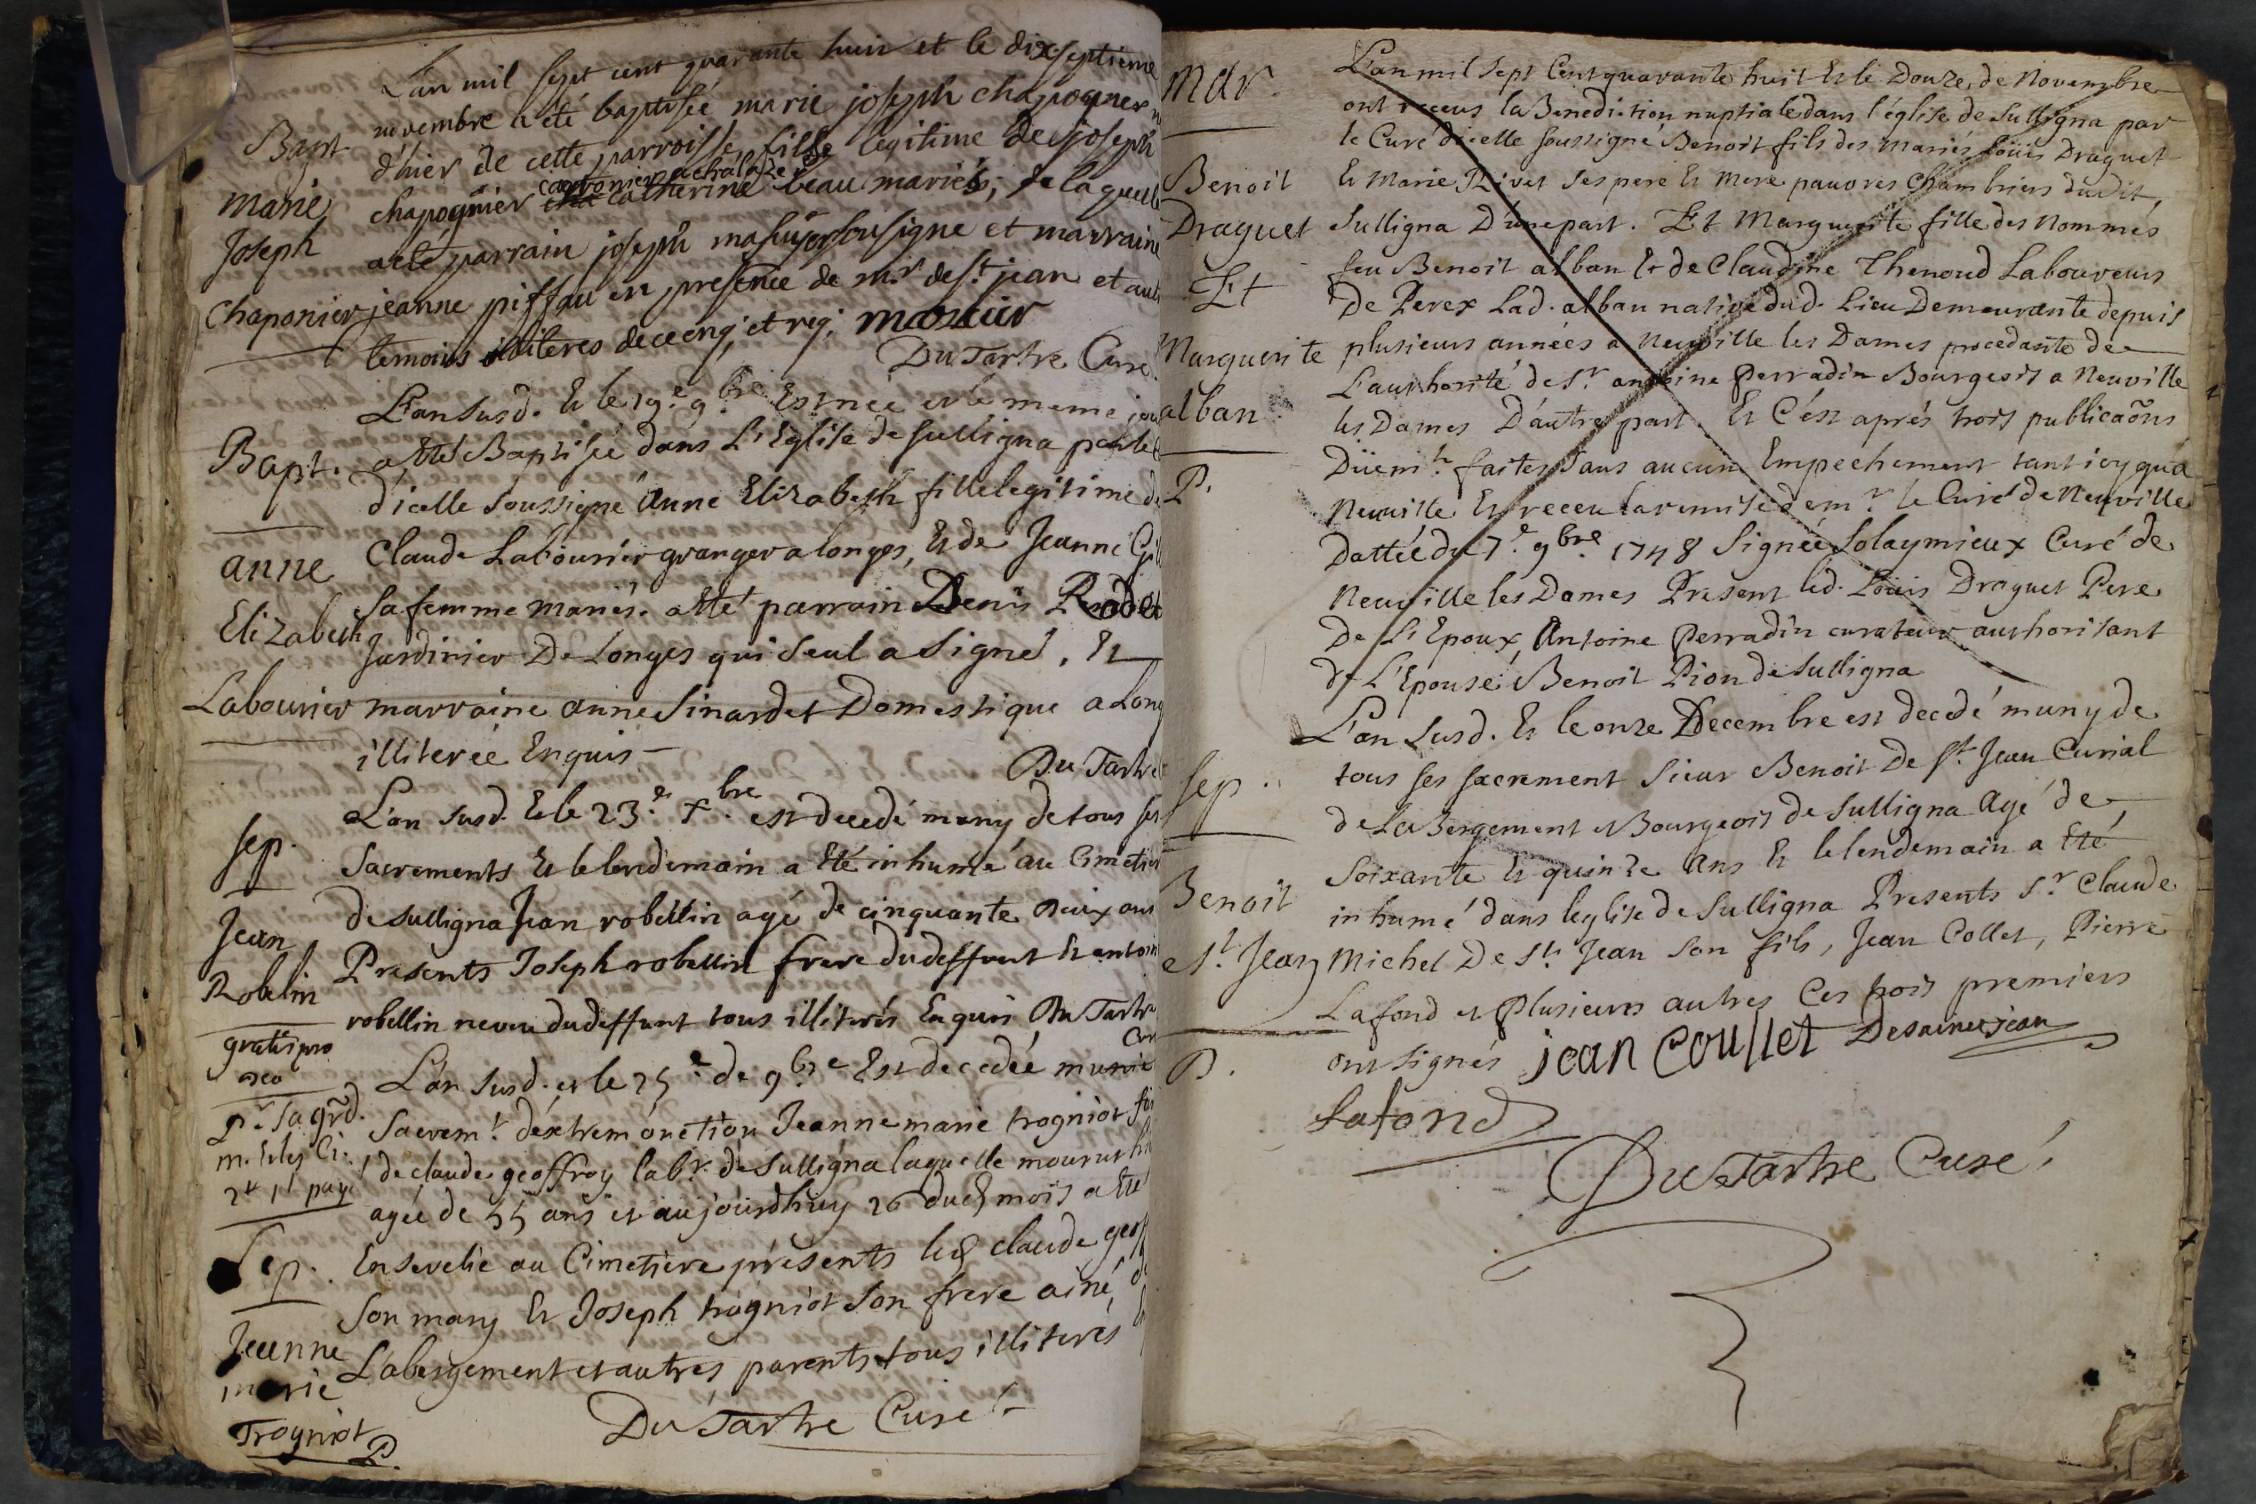 L'an mil sept cent quarante huit et le dixseptieme
novembre a été baptisée marie joseph chapognier
d'hier de cette parroisse fille legitime de joseph
chapognier catherine beau mariés, de laquelle
a été parrain joseph masuier sousigne et marraine
jeanne piffau en presence de mr. de st. jean et
temoins iliteres de ce enq; et req; masuir
DuTartre Curé
Bapt.
marie
Joseph
Chaponier
L'an susd. Et le 19e. 9bre. Est née et le meme jou
a etté Baptisée dans L'Eglise de sulligna par le
d'icelle soussigné Anne Elizabeth fille legitime de
Claude Labourier granger a longes, Et de Jeanne
sa femme mariés. a etté parrain Denis Rodet
Jardinier De Longes qui seul a signé, Et
marraine anne Sinardet Domestique a Long
illiterée Enquis
Du Tartre
Bapt.
anne
Elizabeth
Labourier
L'an susd. Et le 23e. Xbre. est decedé muny de tous ses
Sacrements Et le lendemain a Eté inhumé au Cimetier
de sulligna Jean robellin agé de cinquante deux ans
Presents Joseph robellin frere du deffunt Et antoin
robellin neveu du deffunt tous illiterés Enquis Du Tartre
Sep.
Jean
Robelin
gratis pro
deo
L'an susd. et le 25e. de 9bre Est decedée munie
Sacremt. d'extrem onction Jeanne marie trogniot
de claude geoffroy labr. de Sulligna laquelle mourut
agée de 55 ans et aujourdhuy 26 dud mois a Eté
Ensevelie au Cimetiere présents led claude geof
Son mary Et Joseph trogniot Son frere ainé,
Labergement et autres parents tous illiterés
Du Tartre Curé
Sep.
Jeanne
marie
Trogniot
P.
Mar.
Benoit
Draguet
Et
Marguerite
alban
P.
L'an mil sept Cent quarante huit Et le Douze de Novembre
ont receus la Benediction nuptiale dans l'église de Sulligna par
le Curé d'icelle soussigné Benoit fils des mariés Loüis Draguet
Et Marie Rivet ses pere Et Mere pauvres Chambriers dudit
Sulligna D'une part. Et Marguerite fille des Nommés
feu Benoit alban Et de Claudine Thenoud Laboureurs
De Perex Lad. alban native dud. Lieu Demeurante depuis
plusieurs années a Neuville les Dames procedante de
L'authorité de Sr. antoine Perradin Bourgeois a Neuville
les Dames D'autre part. Et C'est aprés trois publicaõns
Düemt. faites Sans aucun Empechement tant icy qu'a
Neuville Et receu la remise de mr. le Curé de Neuville
Dattée du 7e. 9bre. 1748 Signée Solaymieux Curé de
Neuville les Dames Present led. Loüis Draguet Pere
De L'Epoux, Antoine Perradin curateur authorisant
de L'Epouse, Benoit Pion de Sulligna
L'an Susd. Et le onze Decembre est decedé muny de
tous ses sacrement Sieur Benoit De St. Jean Curial
de LaBergement et Bourgeois de Sulligna Agé de
Soixante Et quinze Ans Et le lendemain a Eté
inhumé dans leglise de Sulligna Presents Sr. Claude
Michel De St. Jean Son fils, Jean Collet, Pierre
Lafond et Plusieurs autres Ces trois premiers
ont signés jean Coullet Desaintjean
Lafond
DuTartre Curé
Sep.
Benoit
St. Jean
P.